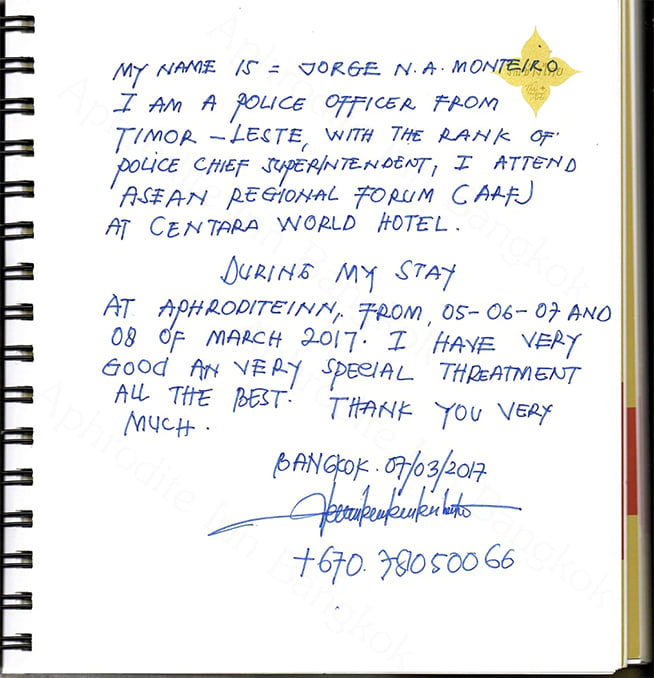 MY NAME IS = JORGE N.A. MONTEIRO
I AM A POLICE OFFICER FROM
TIMOR - LESTE, WITH THE RANK OF
POLICE CHIEF SUPERINTENDENT, I ATTEND
ASEAN REGIONAL FORUM (ARF)
AT CENTARA WORLD HOTEL.
DURING MY STAY
AT APHRODITEINN, FROM, 05-06-07 AND
08 OF MARCH 2017. I HAVE VERY
GOOD AN VERY SPECIAL THREATMENT
ALL THE BEST. THANK YOU VERY
MUCH.
BANGKOK. 07/03/2017
+670. 78050066
Aphrodite Inn Bangkok